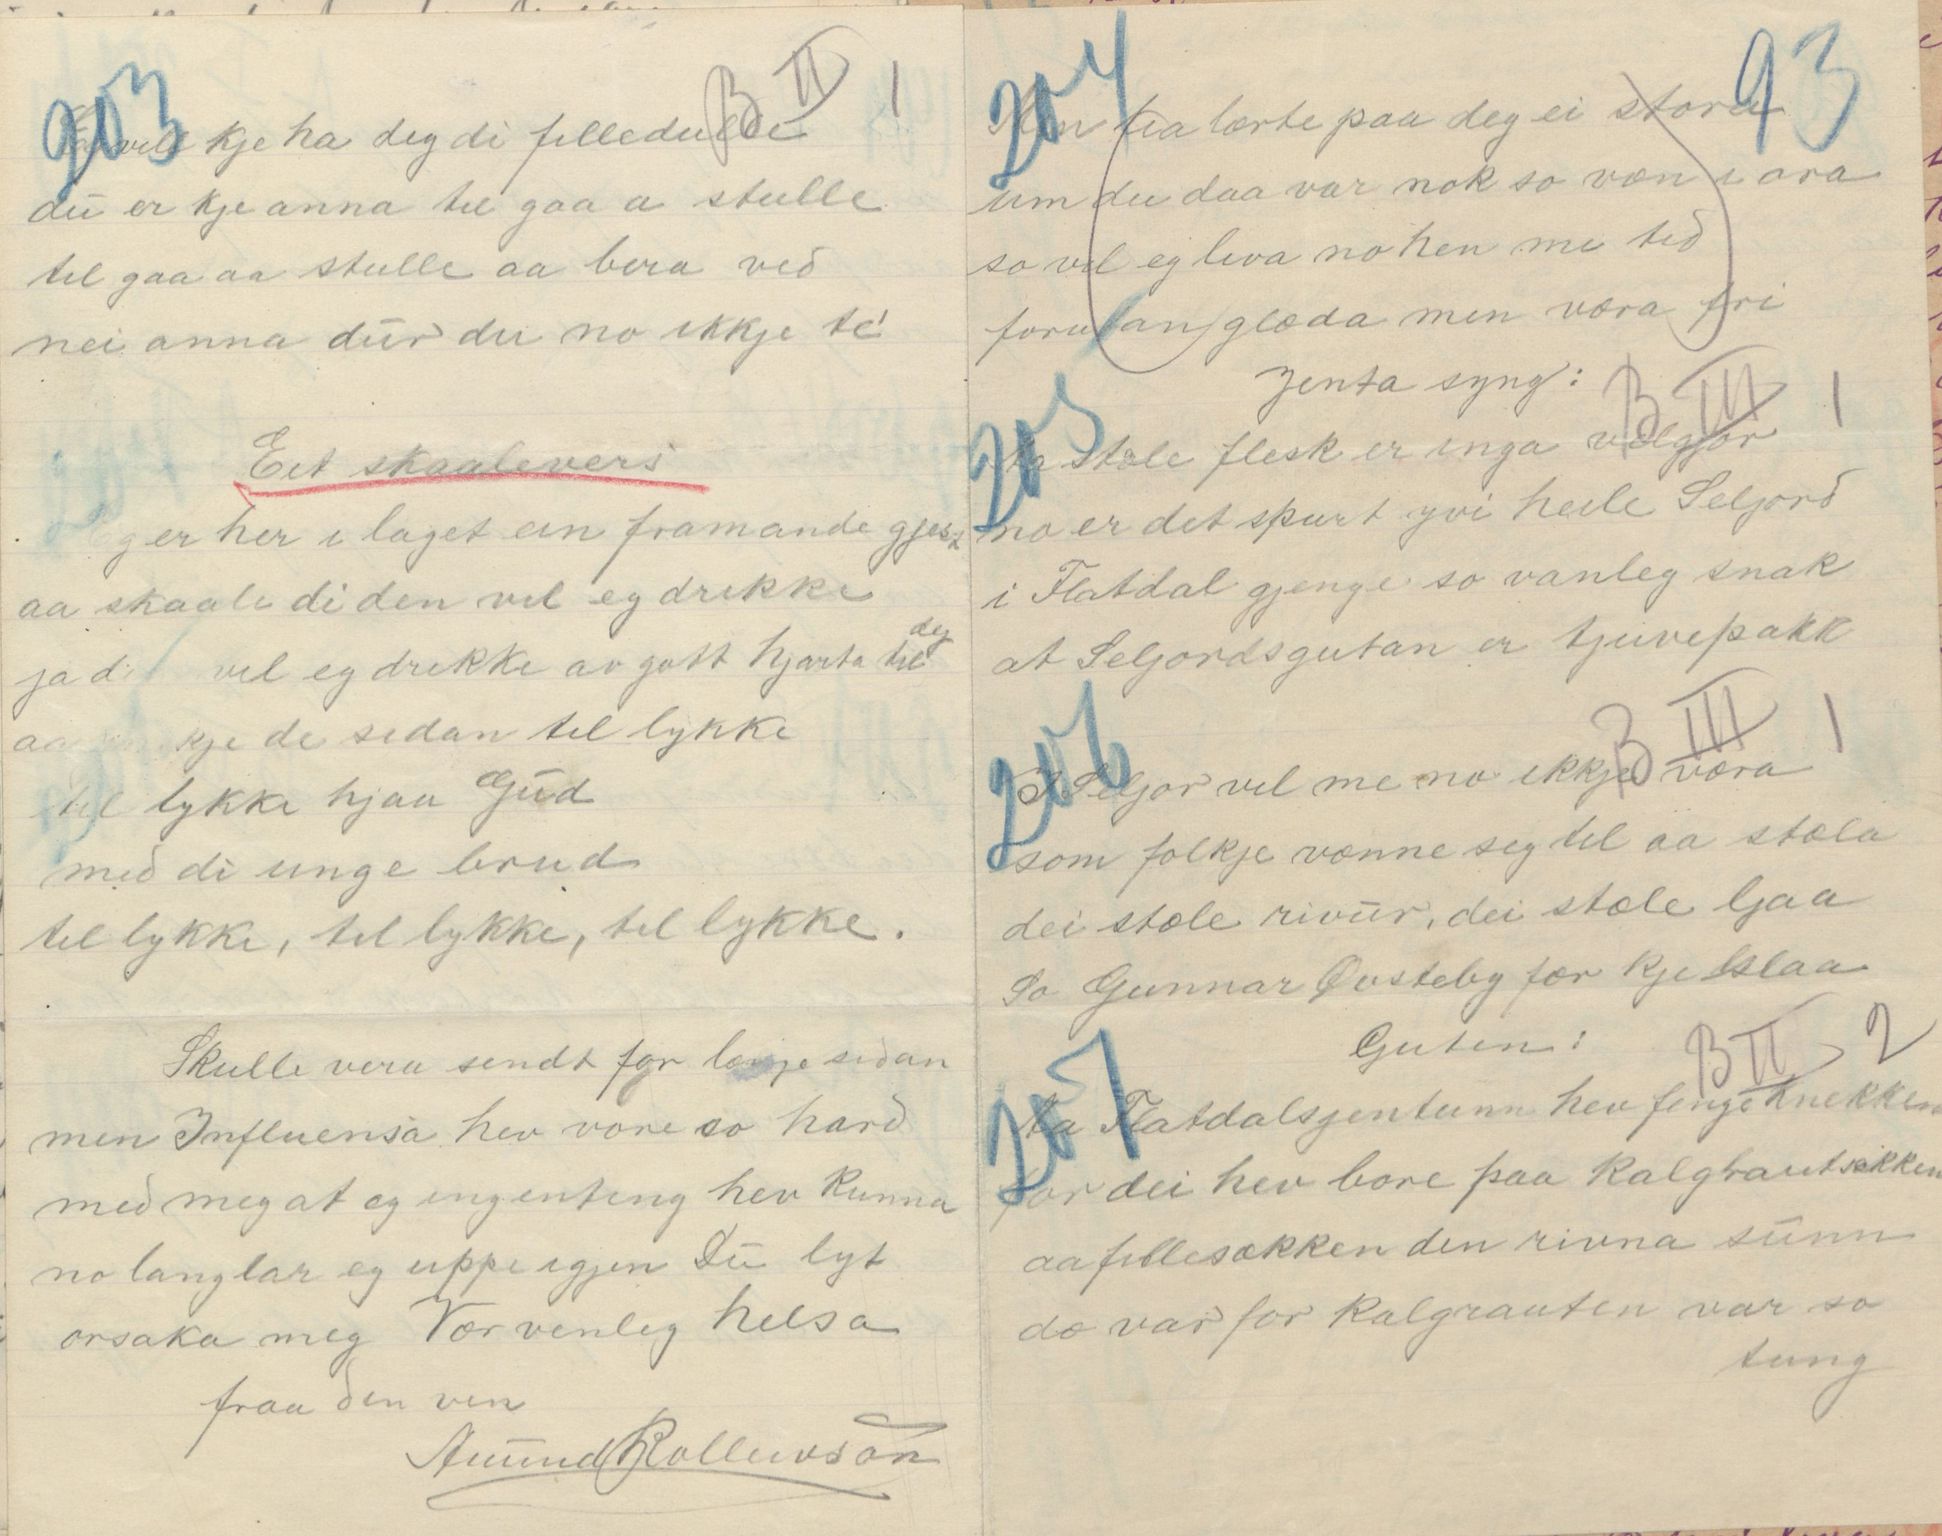 203 B II 1
vil kje ha deg di filledulle
du er kje anna til gaa a stulle
til gaa aa stulle aa bera ved
nei anna dur du no ikkje te
Eit skaalevers
Eg er her i laget ein framande gjest
aa skaale di den vil eg drekke
ja di vil eg drekke av gott hjarta til deg
aa kje de sedan til lykke
til lykke hjaa Gud
med di unge brud
til lykke, til lykke, til lykke.
Skulle vera sendt for længe sidan
men Influensa hev vore so hard
med meg at eg ingenting hev kunna
no langlar eg uppe igjen Du lyt
orsaka meg Vær venleg helsa
fraa den ven
Aamund Rolleivson
93
204
Men lærte paa deg ei stora
um du daa var nok so væn i ara
so vil eg leva no hen mi tid
forutan glæda men væra fri
Jenta syng:
205 B III 1
Aa stæle flesk er inga vælgjør
no er det spurt yvi heile Seljord
i Flatdal gjenge so vanleg snak
at Seljordsgutan er tjuvepakk
206 B III 1
I Seljor vil me no ikkje væra
som folkje vænne seg til aa stæla
dei stæle rivur, dei stæle ljaa
So Gunnar Øvsteby fær kje slaa
Guten:
207 B II 2
Aa Flatdalsjentunn hev fenge knekken
for dei hev bore paa kalgrautsekken
aa fillesækken den rivna sunn
dæ var for kalgrauten var so
tung